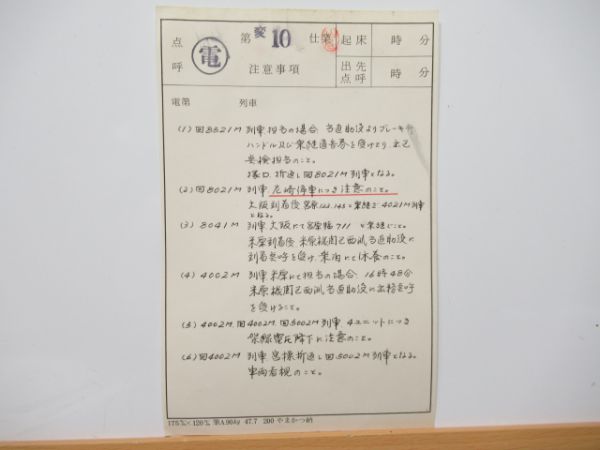 点呼
電
第 変 10 仕業
注意事項
起床 時 分
出先点呼 時 分
電第 列車
(1) 回8021M 列車担当の場合、当直助役よりブレーキ弁
ハンドル及び乗継通告券を受けとり、出区
点検担当のこと。
塚口 折返し 回8021M列車となる。
(2) 回8021M 列車、尼崎停車につき注意のこと。
大阪到着後宮原 と乗継ぎ 4021M列車
となる。
(3) 8041M 列車大阪にて宮原 711 と乗継ぐこと。
米原到着後、米原機関区西派、当直助役に
到着点呼を受け、乗泊にて休養のこと。
(4) 4002M 列車米原にて担当の場合、16時48分
米原機関区西派、当直助役に出務点呼
を受けること。
(5) 4002M.回4002M.回5002M列車、4ユニットにつき
架線電圧降下に注意のこと。
(6) 回4002M 列車、宮操折返し回5002M列車となる。
車両看視のこと。
175㍉×120㍉ 第A90kg 47.7 200 やまかつ納